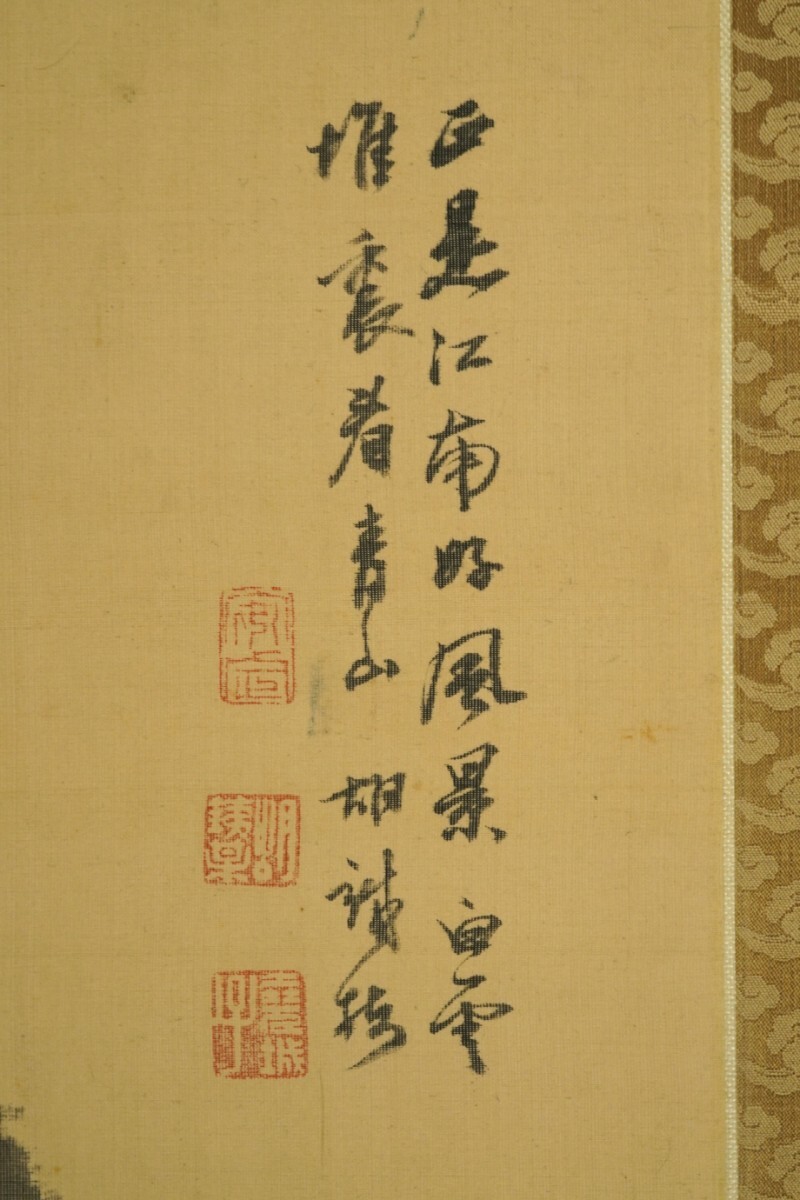 正是江南好風景白雲
堆裏看青山 胡